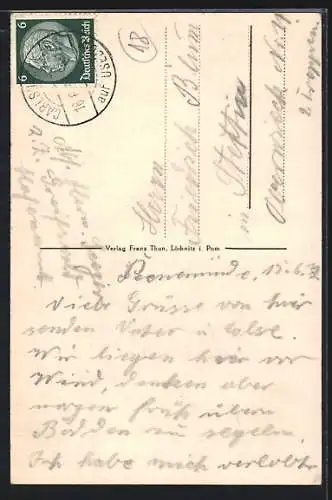 6 Deutsches Reich 6
CARLS
auf USED
18
Herrn
Friedrich Blum
in Stettin
2 Treppen
Abs. Herm.
z. Z. Greifswald
Hafenamt
Verlag Franz Thun, Löcknitz i. Pom.
Peenemünde, 15.6.
Viele Grüsse von hier
senden Vater u. Else.
Wir liegen hier vor
Wind, denken aber
morgen früh übern
Bodden zu segeln.
Ich habe mich verlobt